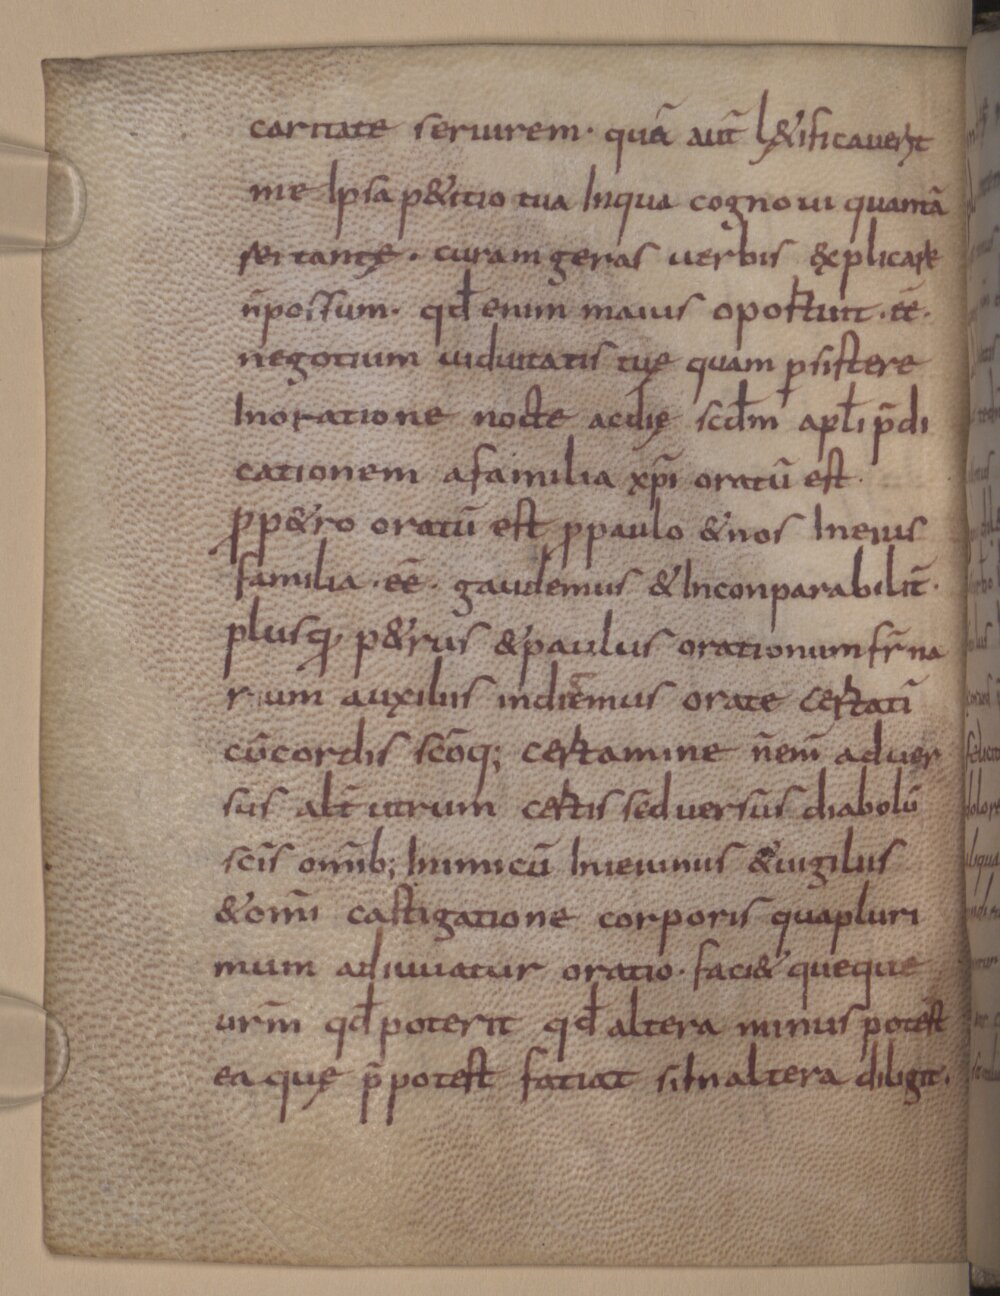 caritate seruirem· quā aūt l&ificauerit
me Ipsa p&itio tua Inqua cognoui quantā
curam geras uerbis explicare
n̄possum· qđ enim maius oportuit ·eē·
negotium uiduitatis tuę quam psistere
Inoratione nocte acdię scđm apłi p̄di
cationem afamilia xp̄i oratū est·
pp&ro oratū est ppaulo &nos Ineius
familia ·eē· gaudemus &Inconparabilit̄·
plusq, p&rus &paulus orationum fr̄na
rum auxiliis indiemus orate certatī
cōcordis scōq; certamine n̄enī aduer
sus alt̄utrum certis sed uersūs diabolū
scīs omīb; Inimicū Ieiuniis &uigiliis
&omī castigatione corporis quapluri
mum adiuuatur oratio· faci& queque
urm̄ qđpoterit qđaltera minus potest
ea quę p̄potest fatiat siInaltera diligit·